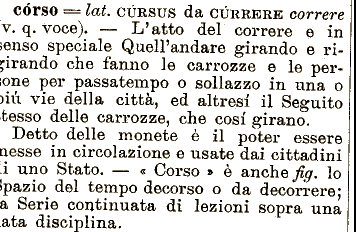 córso = lat. CÚRSUS da CÚRRERE correre
(v. q. voce). — L'atto del correre e in
senso speciale Quell'andare girando e ri-
girando che fanno le carrozze e le per-
sone per passatempo o sollazzo in una o
più vie della città, ed altresí il Seguito
stesso delle carrozze, che cosí girano.
Detto delle monete è il poter essere
messe in circolazione e usate dai cittadini
di uno Stato. — « Corso » è anche fig. lo
Spazio del tempo decorso o da decorrere;
la Serie continuata di lezioni sopra una
data disciplina.